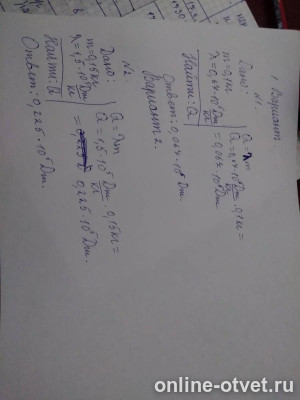 1 Вариант
№1.
Дано:
m=0,1кг
λ=0,67·10⁵ Дж/кг
Найти: Q
Q=λm
Q=0,67·10⁵ Дж/кг·0,1кг=
=0,067·10⁵ Дж.
Ответ: 0,067·10⁵ Дж.
Вариант 2.
№2
Дано:
m=0,15кг
λ=1,5·10⁵ Дж/кг
Найти: Q
Q=λm
Q=1,5·10⁵ Дж/кг·0,15кг=
= 0,225·10⁵ Дж.
Ответ: 0,225·10⁵ Дж.
online-otvet.ru